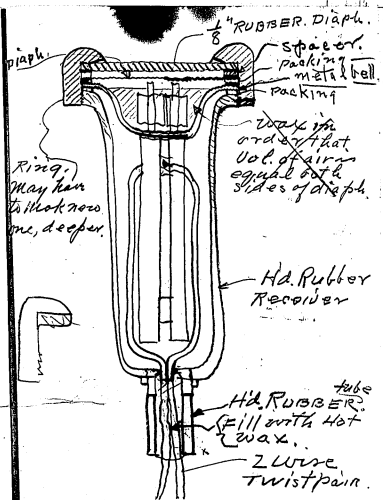 1/8" RUBBER. Diaph.
Diaph.
spacer.
packing
metal bell.
packing
wax in
order that
Vol. of air
equal both
sides of diaph
Ring.
May have
to mak new
one, deeper.
Hd. Rubber
Receiver
Hd. RUBBER. tube
Fill with Hot
wax.
2 wire
Twist pair.